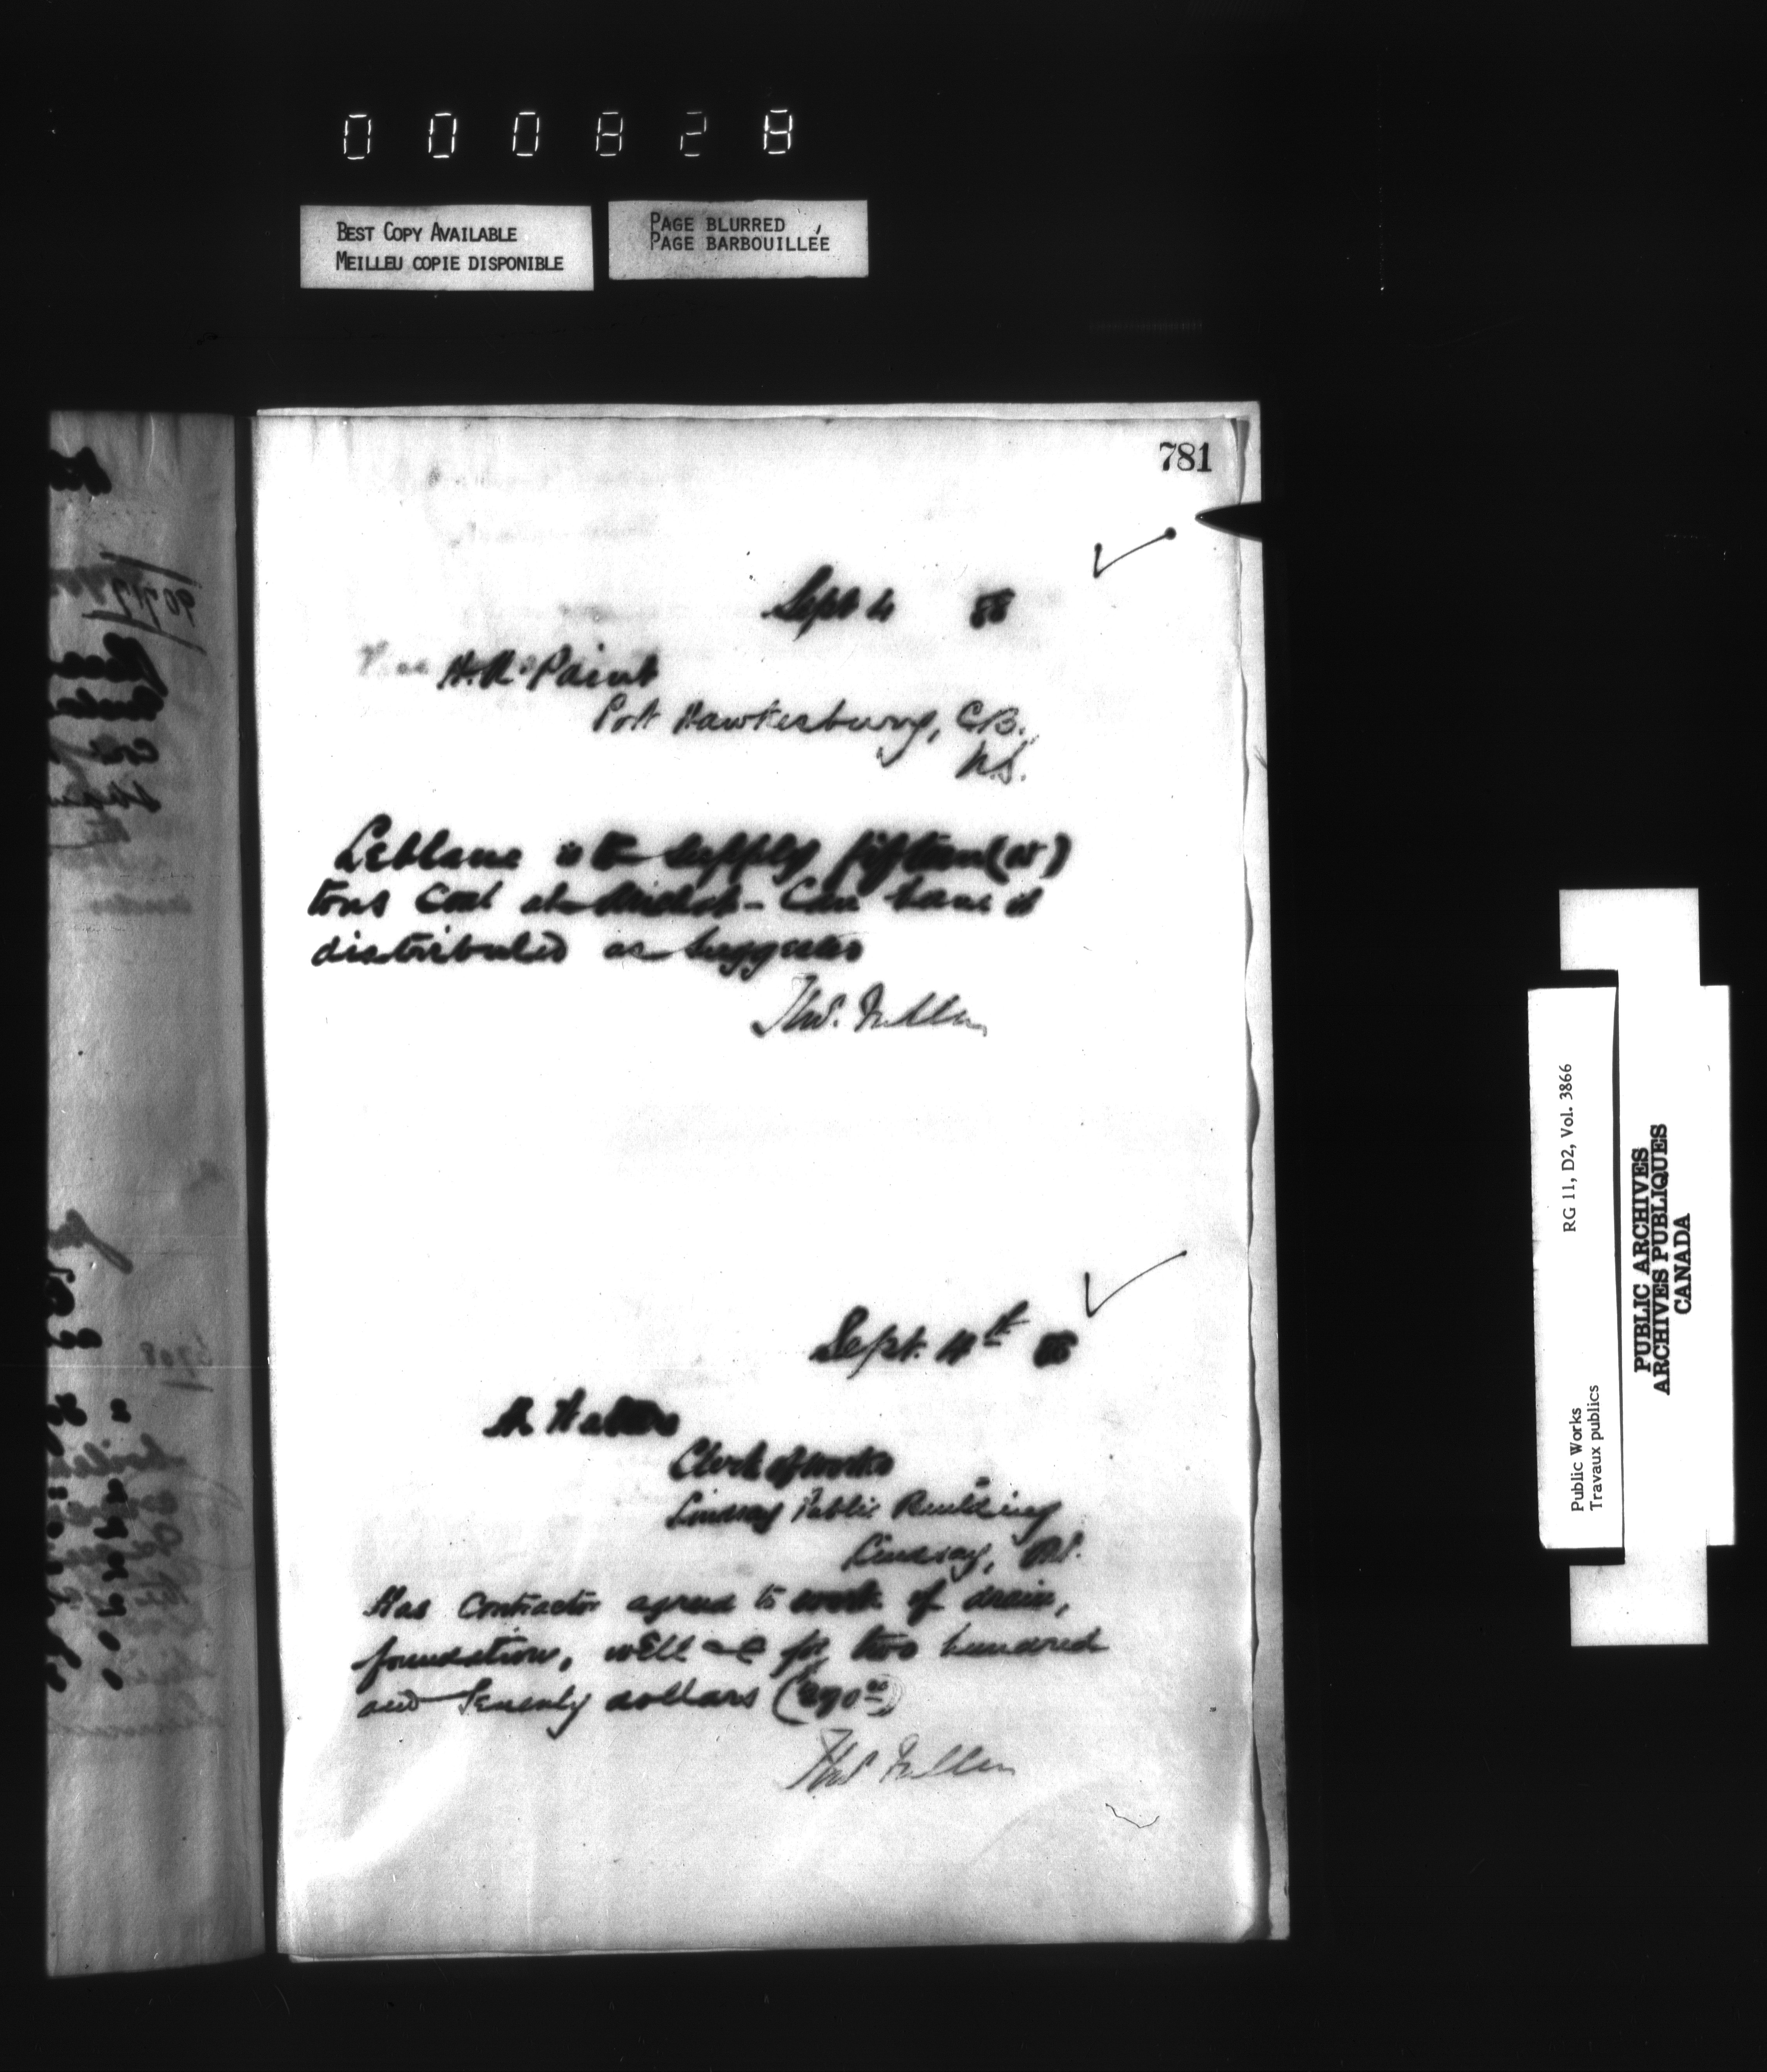 000828
BEST COPY AVAILABLE
MEILLEU COPIE DISPONIBLE
PAGE BLURRED
PAGE BARBOUILLÉE
781
Sept 4 88
H. N. Paint
Port Hawkesbury, C.B.,
N.S.
Leblanc is to supply fifteen (15)
tons Coal at - Can have it
distributed as suggested
Thos. Fuller
Sept. 4th 88
Clerk of works
Lindsay Public Building
Lindsay, Ont.
Has Contractor agreed to work of drain,
foundation, well &c for two hundred
and Seventy dollars (270 00)
Thos Fuller
Public Works
Travaux publics
RG 11, D2, Vol. 3866
PUBLIC ARCHIVES
ARCHIVES PUBLIQUES
CANADA